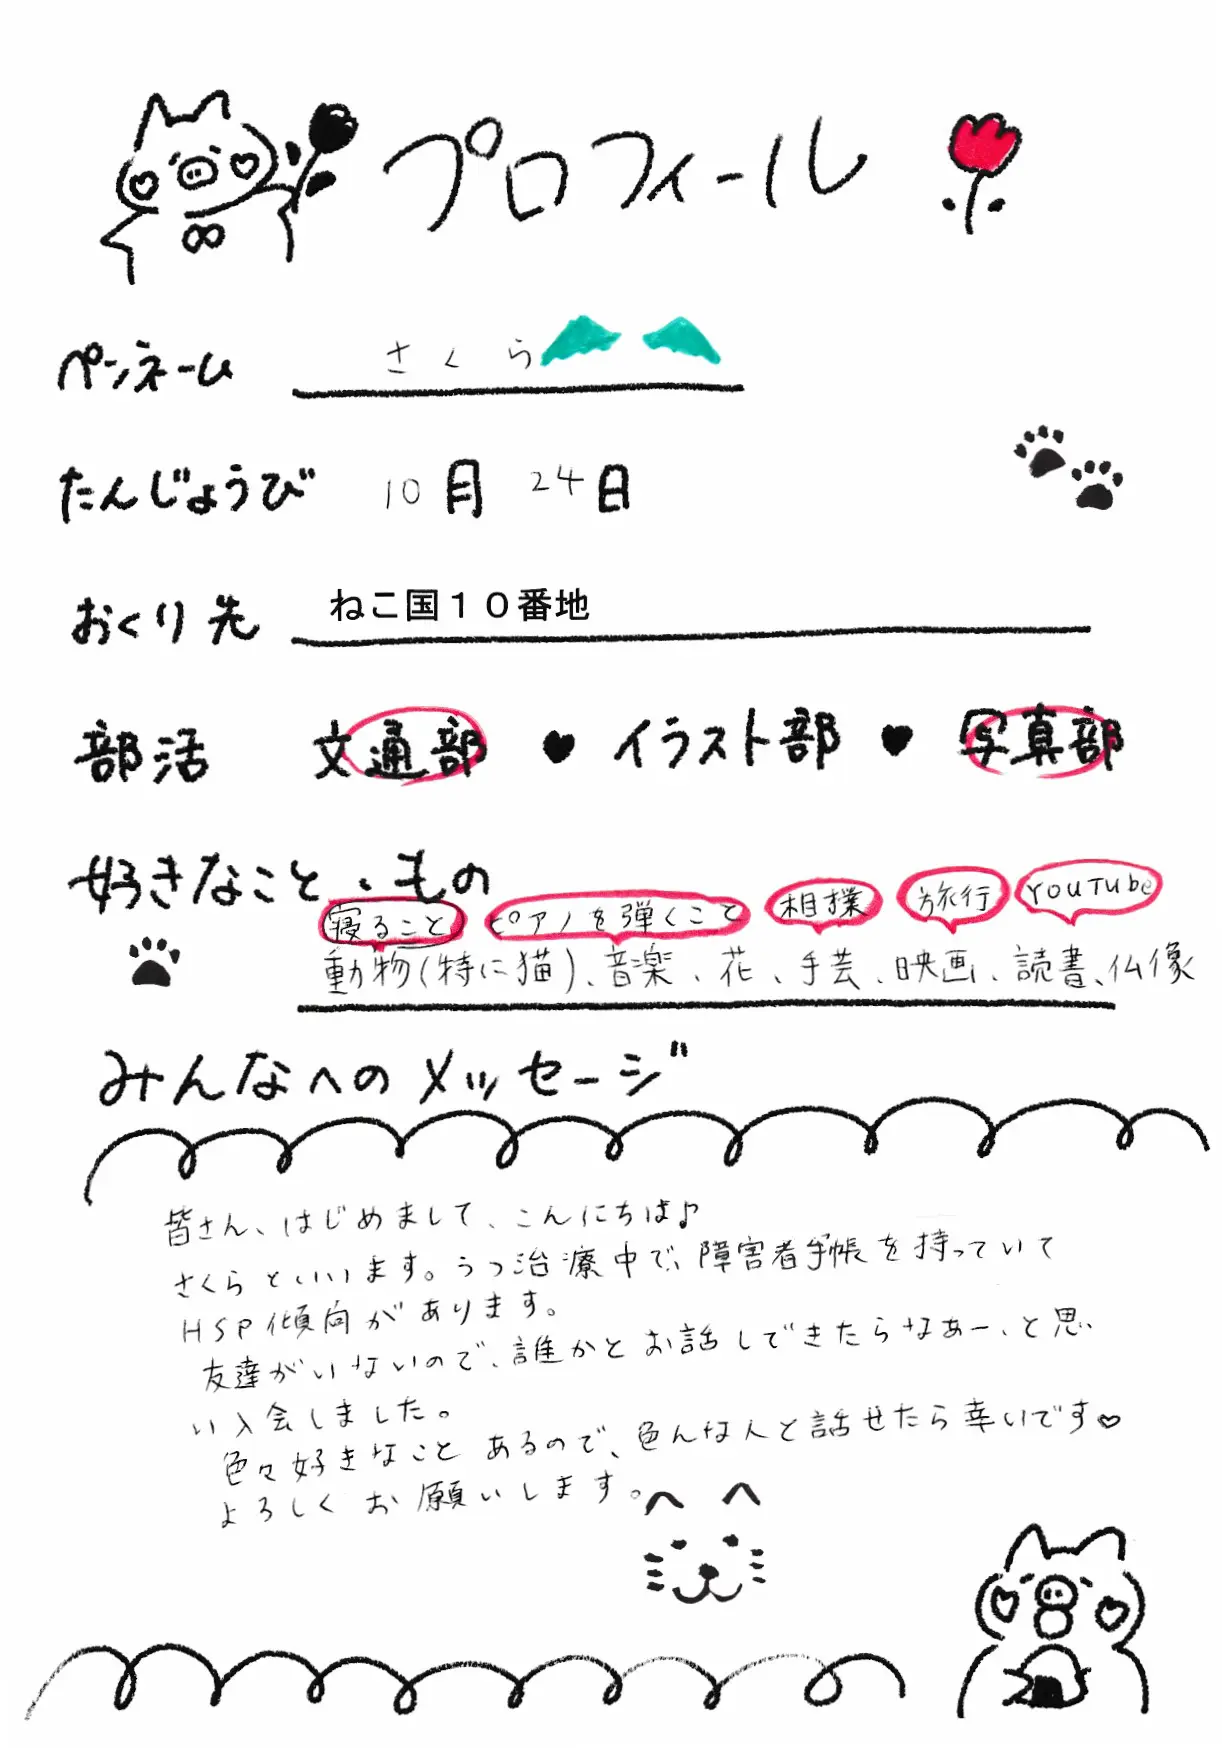 プロフィール
ペンネーム さくら
たんじょうび 10月 24日
おくり先 ねこ国10番地
部活 文通部 ♥ イラスト部 ♥ 写真部
好きなこと、もの
寝ること ピアノを弾くこと 相撲 旅行 YouTube
動物(特に猫)、音楽、花、手芸、映画、読書、仏像
みんなへのメッセージ
皆さん、はじめまして、こんにちは♪
さくらといいます。うつ治療中で、障害者手帳を持っていて
HSP傾向があります。
友達がいないので、誰かとお話しできたらなあー、と思
い入会しました。
色々好きなことあるので、色んな人と話せたら幸いです♡
よろしくお願いします。